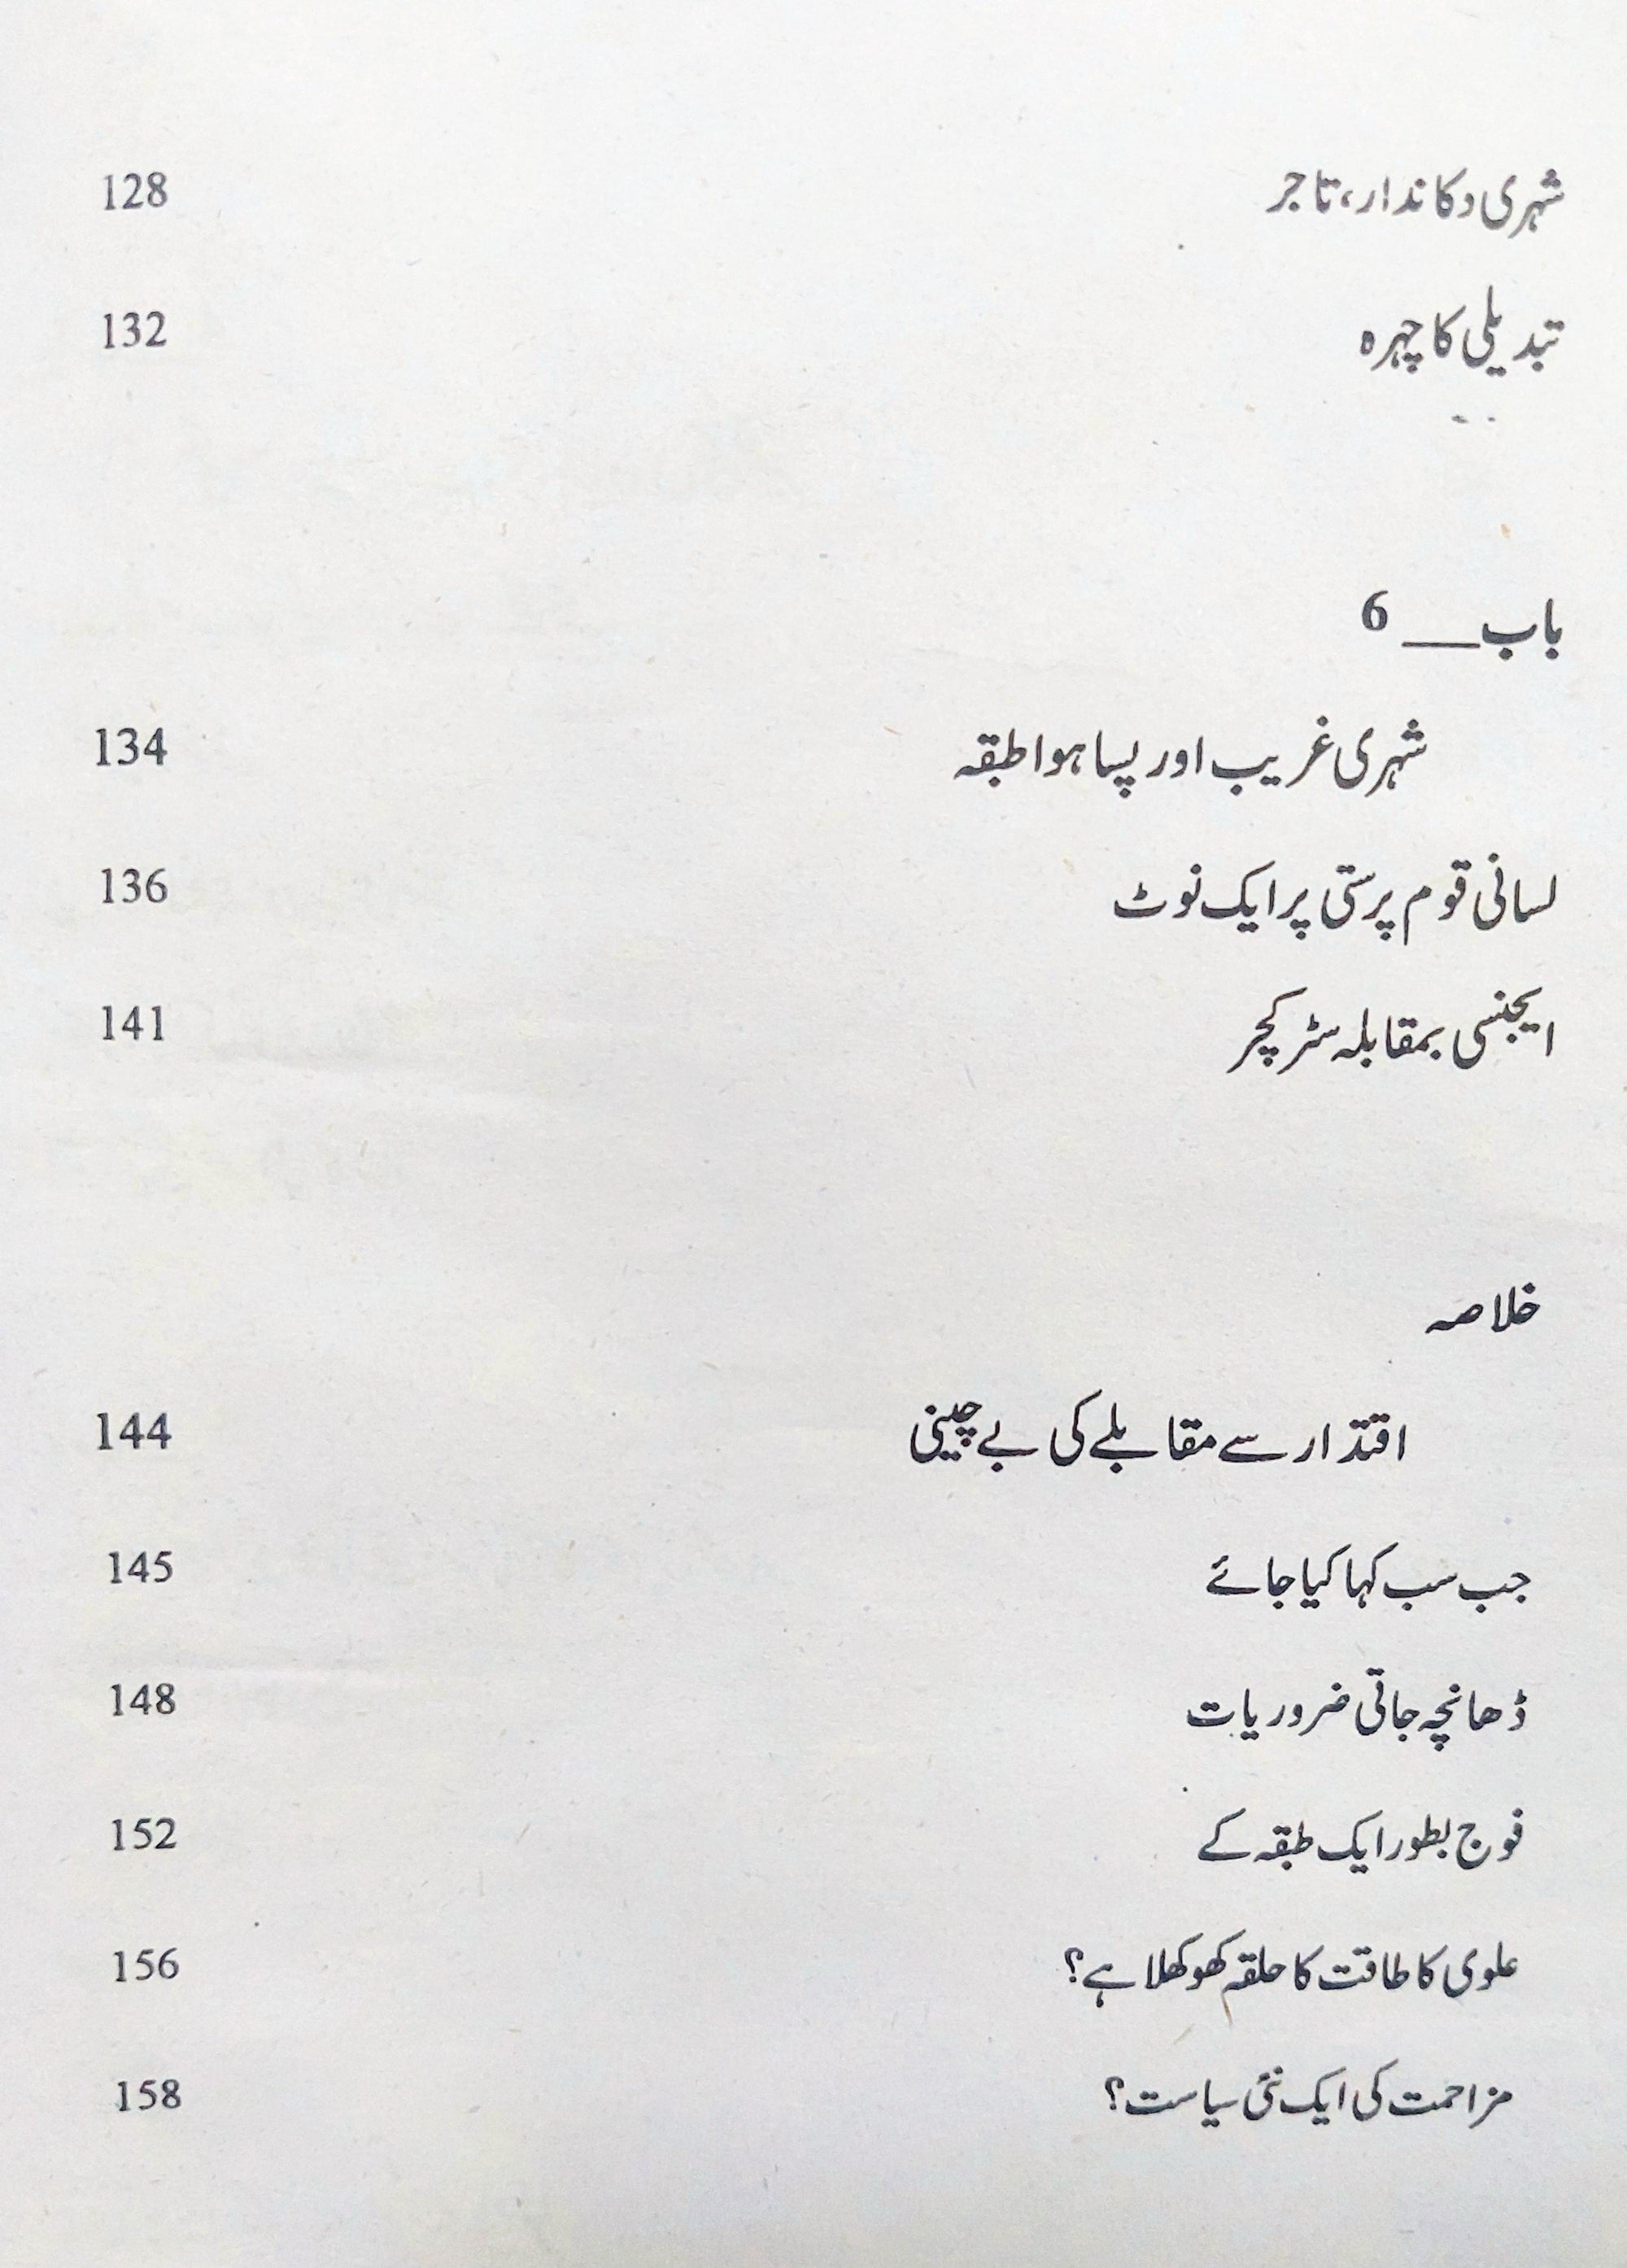 شہری دکاندار، تاجر 128
تبدیلی کا چہرہ 132
باب__ 6
شہری غریب اور پسا ہوا طبقہ 134
لسانی قوم پرستی پر ایک نوٹ 136
ایجنسی بمقابلہ سٹرکچر 141
خلاصہ
اقتدار سے مقابلے کی بے چینی 144
جب سب کہا کیا جائے 145
ڈھانچہ جاتی ضروریات 148
فوج بطور ایک طبقہ کے 152
علوی کا طاقت کا حلقہ کھوکھلا ہے؟ 156
مزاحمت کی ایک نئی سیاست؟ 158